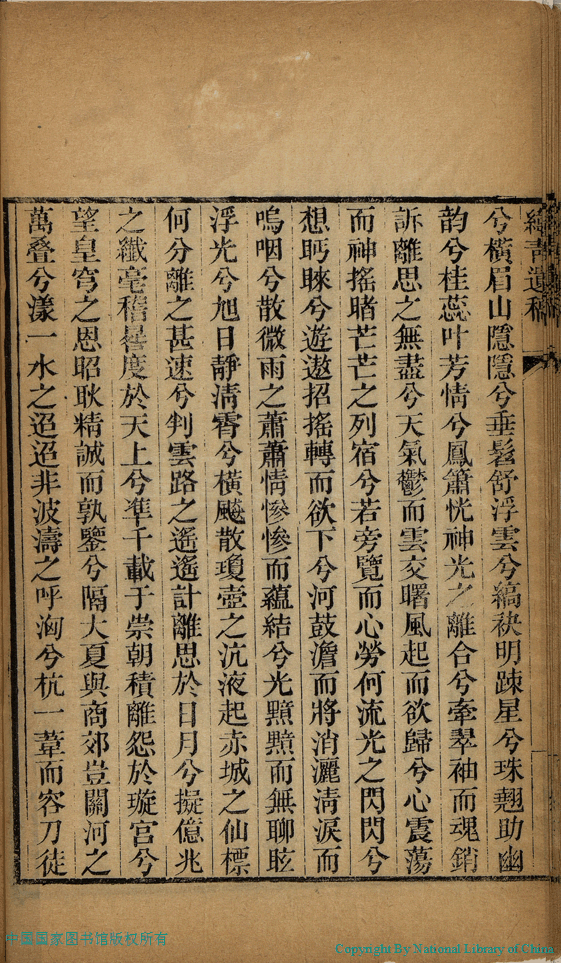 遺稿
兮橫眉山隱隱兮垂鬟舒浮雲兮縞袂明疎星兮珠翹助幽
韵兮桂蕊叶芳情兮鳳簫恍神光之離合兮牽翠袖而魂銷
訴離思之無盡兮天氣鬱而雲交曙風起而欲歸兮心震蕩
而神搖睹芒芒之列宿兮若旁覽而心勞何流光之閃閃兮
想眄睞兮遊遨招搖轉而欲下兮河鼓澹而將消灑清淚而
嗚咽兮散微雨之蕭蕭情慘慘而蘊結兮光黯黯而無聊眩
浮光兮旭日靜清霄兮橫飈散瓊壺之沆液起赤城之仙標
何分離之甚速兮判雲路之遙遙計離思於日月兮擬億兆
之纖毫稽晷度於天上兮準千載于崇朝積離怨於璇宮兮
望皇穹之恩昭耿精誠而孰鑒兮隔大夏與商郊豈關河之
萬叠兮漾一水之迢迢非波濤之呼洶兮杭一葦而容刀徒
中国国家图书馆版权所有
Copyright By National Library of China.